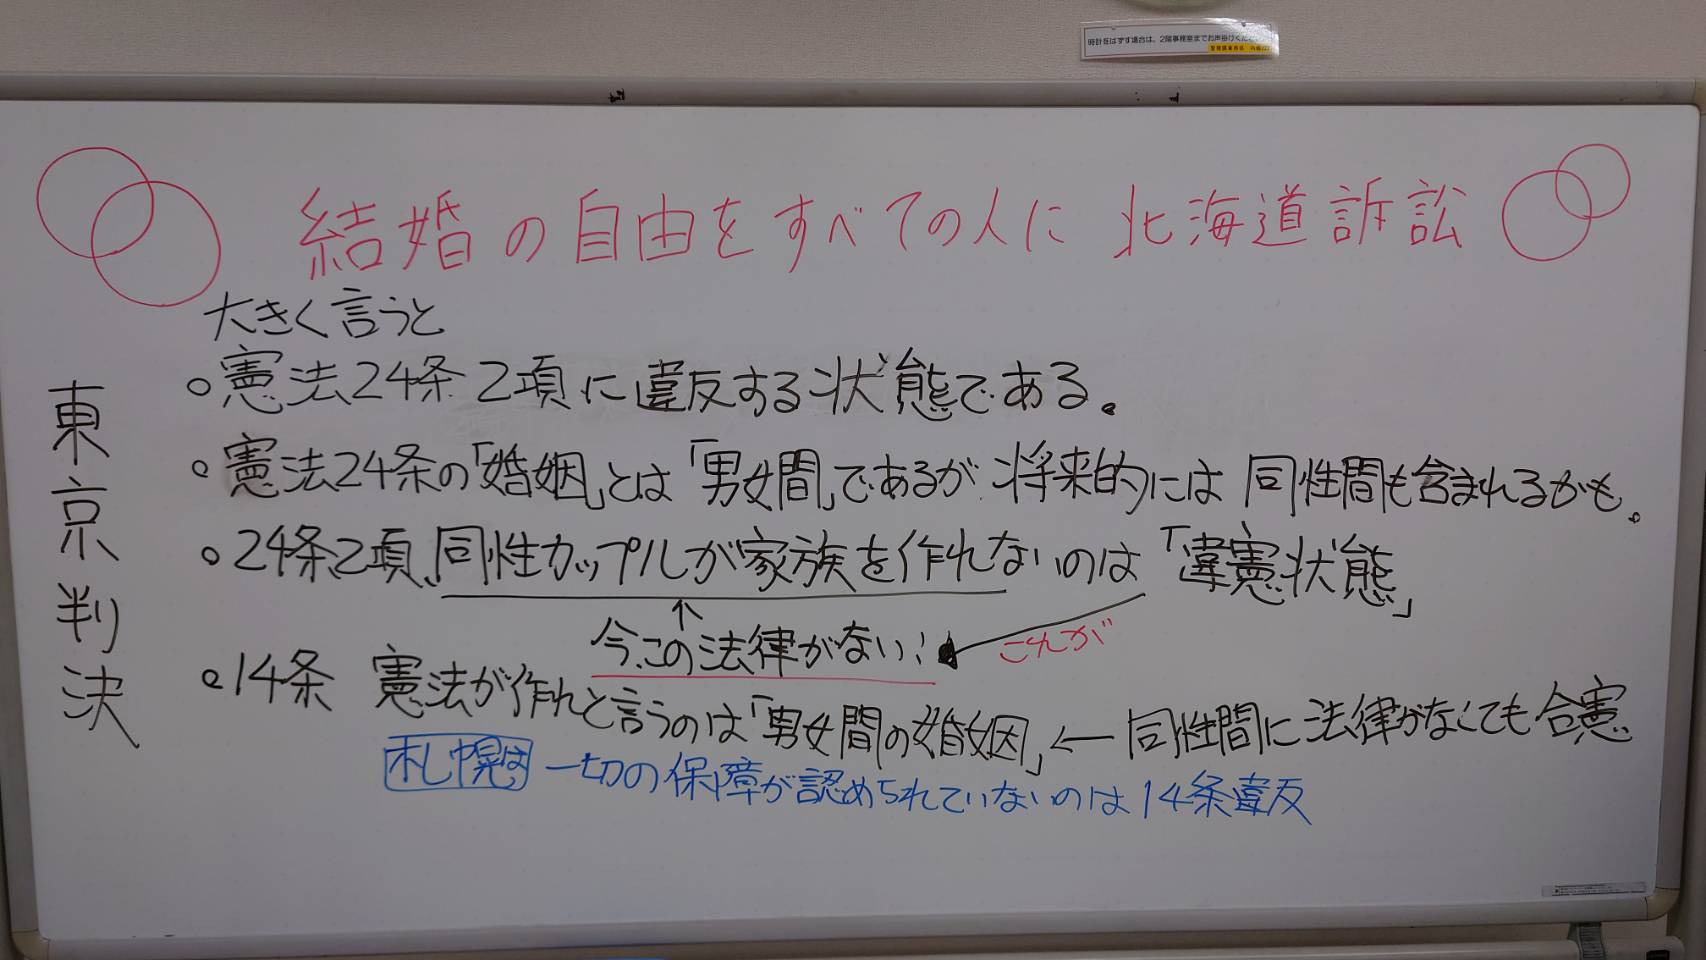 時計をはずす場合は、2階事務室までお声掛けくだ
結婚の自由をすべての人に 北海道訴訟
東京判決
大きく言うと
○憲法24条2項に違反する状態である。
○憲法24条の「婚姻」とは「男女間」であるが将来的には同性間も含まれるかも。
○24条2項、同性カップルが家族を作れないのは「違憲状態」
↑
今この法律がない! これが
○14条 憲法が作れと言うのは「男女間の婚姻」←同性間に法律がなくても合憲
札幌は 一切の保障が認められていないのは14条違反